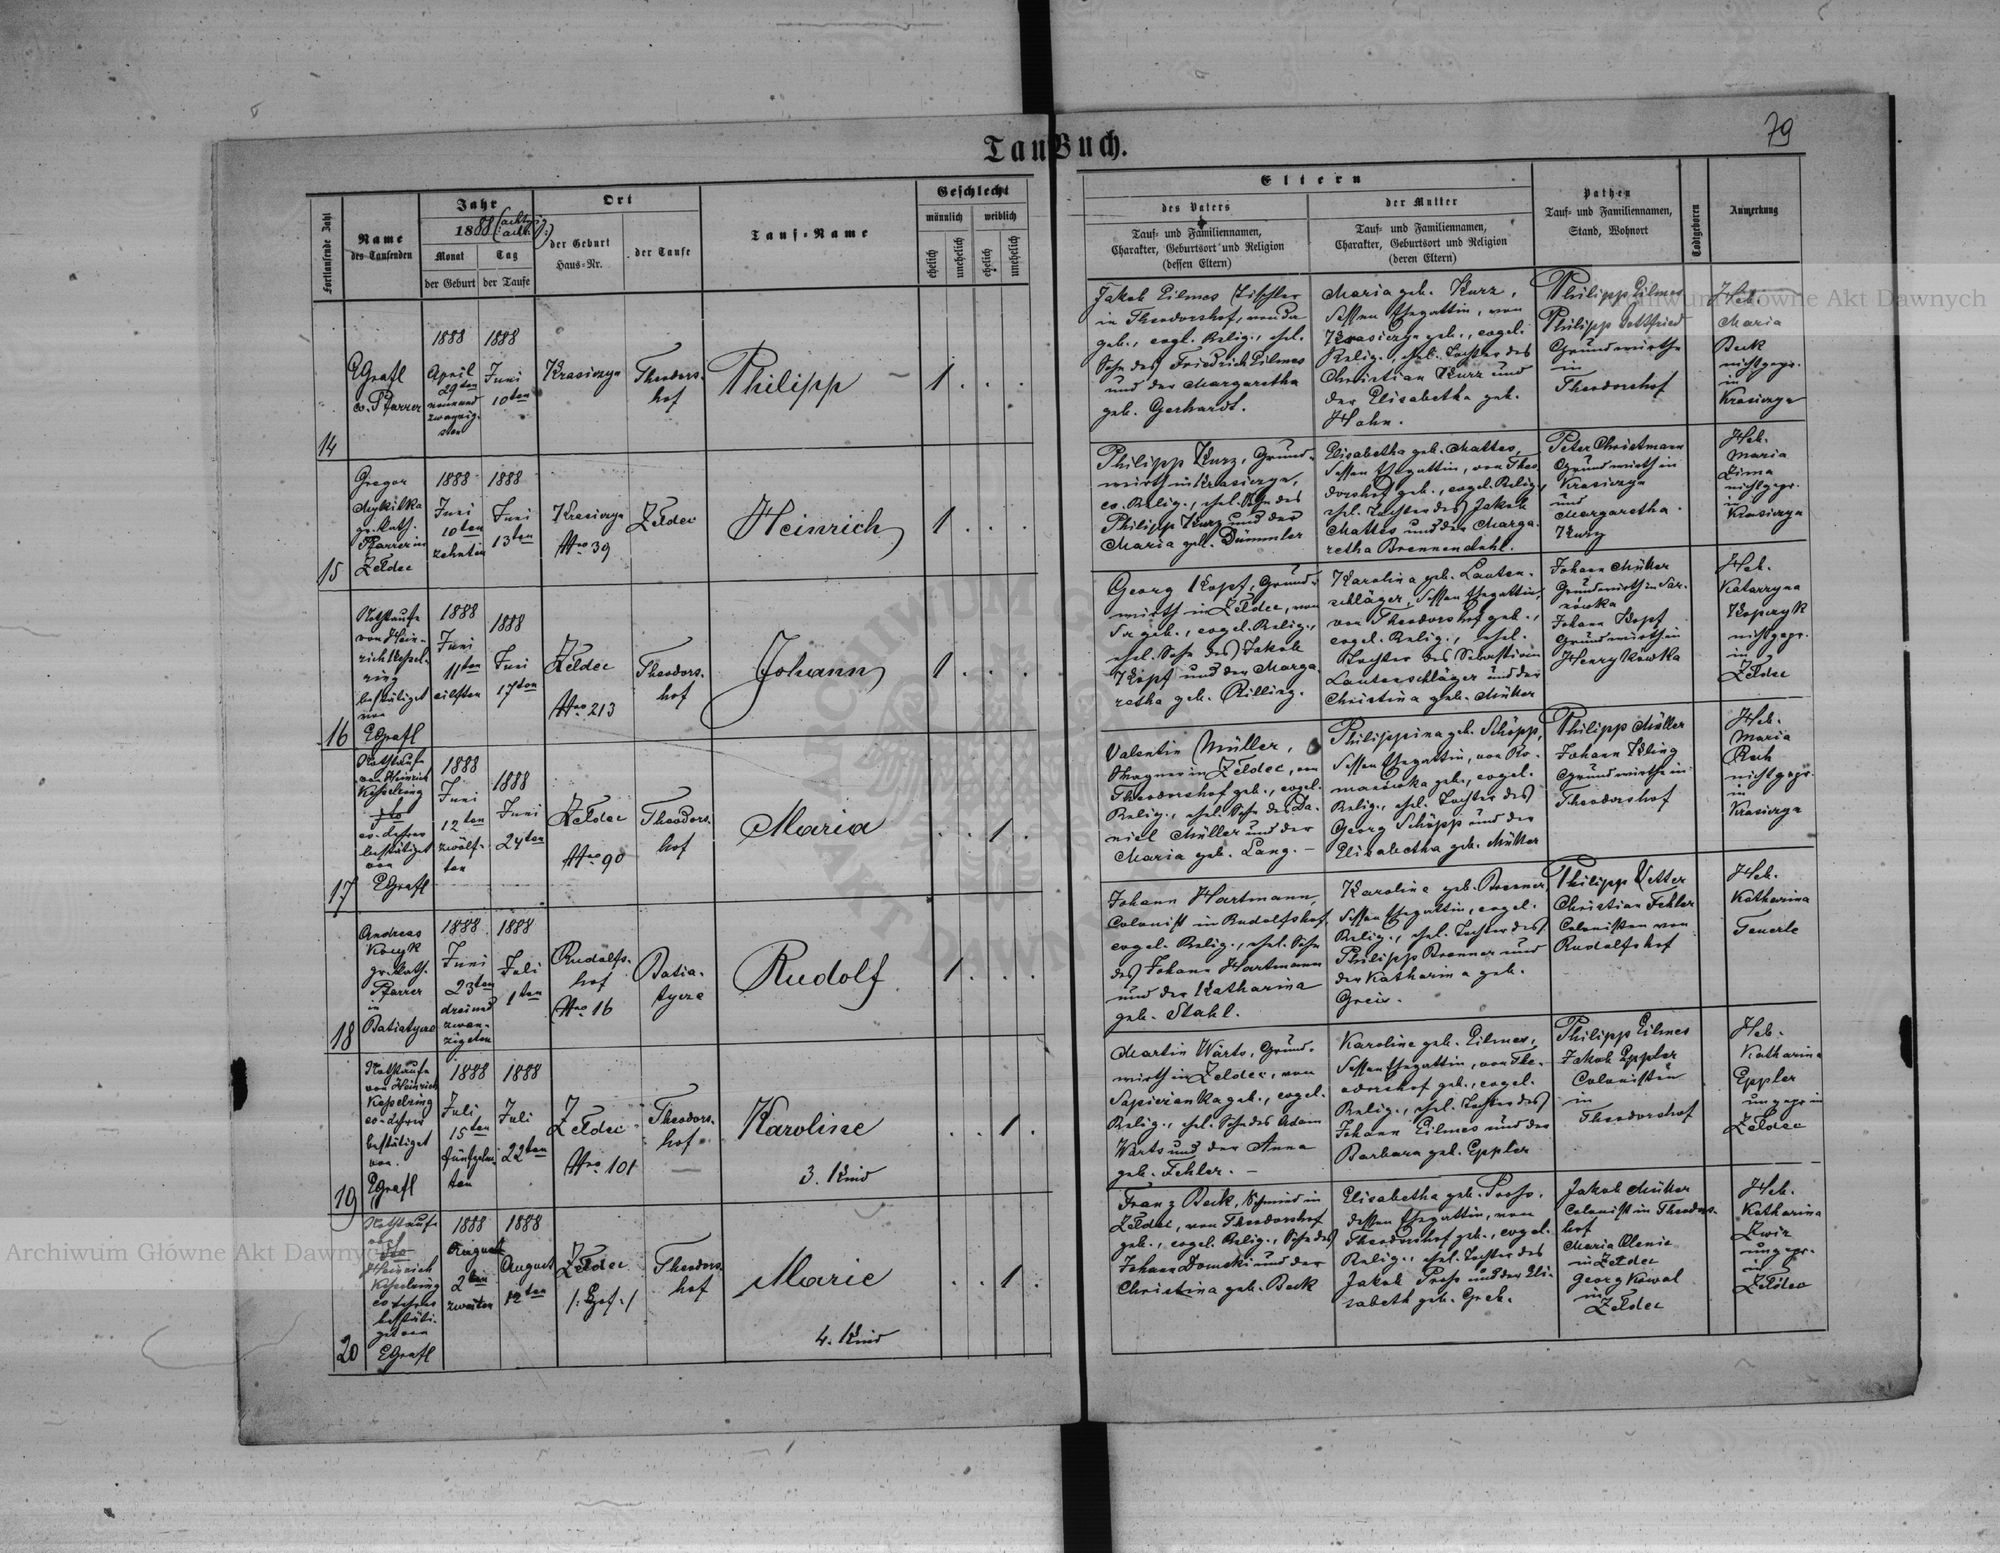 79
TaufBuch.
Fortlaufende Zahl
Name
des Taufenden
Jahr
1888 (: acht :)
Monat
Tag
der Geburt
der Taufe
Ort
der Geburt
Haus-Nr.
der Taufe
Tauf-Name
Geschlecht
männlich
weiblich
ehelich
unehelich
ehelich
unehelich
Eltern
des Vaters
Tauf- und Familiennamen,
Charakter, Geburtsort und Religion
(dessen Eltern)
der Mutter
Tauf- und Familiennamen,
Charakter, Geburtsort und Religion
(deren Eltern)
Pathen
Tauf- und Familiennamen,
Stand, Wohnort
Todtgeboren
Anmerkung
14
EGrafl
ev. Pfarrer
1888
April
29ten
neunund
zwanzig-
sten
1888
Juni
10ten
Krasiczyn
Theodors-
hof
Philipp
1
Jakob Eilmes Tischler
in Theodorshof, von da
geb., evgl. Relig., ehel.
Sohn des Friedrich Eilmes
und der Margaretha
geb. Gerhardt.
Maria geb. Kurz,
dessen Ehegattin, von
Krasiczyn geb., evgel.
Relig., ehel. Tochter des
Christian Kurz und
der Elisabetha geb.
Hahn.
Philipp Eilmes
Philipp Gottfried
Grundwirthe
in
Theodorshof
Heb.
Maria
Beck
nicht gepr.
in
Krasiczyn
15
Gregor
Mykitka
gr. kath.
Pfarrer in
Zełdec
1888
Juni
10ten
zehnten
1888
Juni
13ten
Krasiczyn
Nro 39
Zełdec
Heinrich
1
Philipp Kurz, Grund-
wirth in Krasiczyn,
ev. Relig., ehel. Sohn des
Philipp Kurz und der
Maria geb. Dümmler
Elisabetha geb. Mattes,
dessen Ehegattin, von Theo
dorshof geb., evgel. Relig.,
ehel. Tochter des Jakob
Mattes und der Marga-
retha Brennendahl.
Peter Christmann
Grundwirth in
Krasiczyn
und
Margaretha
Kurz
Heb.
Maria
Zima
nicht gepr.
in
Krasiczyn
16
Nothtaufe
von Hein-
rich Kessel-
ring
bestätiget
von
EGrafl
1888
Juni
11ten
eilften
1888
Juni
17ten
Zełdec
Nro 213
Theodors-
hof
Johann
1
Georg Kopf, Grund-
wirth in Zełdec, von
da geb., evgel. Relig.,
ehel. Sohn des Jakob
Kopf und der Marga-
retha geb. Rilling.
Karolina geb. Lauten-
schläger, dessen Ehegattin,
von Theodorshof geb.,
evgel. Relig., ehel.
Tochter des Sebastian
Lautenschläger und der
Christina geb. Müller
Johann Müller
Grundwirth in Sar-
nówka
Johann Kopf
Grundwirth in
Henrykówka
Heb.
Katarzyna
Kopczyk
nicht gepr.
in
Zełdec
17
Nothtauf
von Heinrich
Kesselring
ev. Lehrer
bestätiget
von
EGrafl
1888
Juni
12ten
zwölf-
ten
1888
Juni
24ten
Zełdec
Nro 90
Theodors-
hof
Maria
1
Valentin Müller,
Wagner in Zełdec, von
Theodorshof geb., evgel.
Relig., ehel. Sohn des Da-
niel Müller und der
Maria geb. Lang. –
Philippina geb. Schöpp,
dessen Ehegattin, von Ro-
manówka geb., evgel.
Relig., ehel. Tochter des
Georg Schöpp und der
Elisabetha geb. Müller
Philipp Müller
Johann Kling
Grundwirthe in
Theodorshof
Heb.
Maria
nicht gepr.
in
Krasiczyn
18
Andreas
gr. kath.
Pfarrer
in
Batiatycze
1888
Juni
23ten
dreiund
zwan-
zigsten
1888
Juli
1ten
Rudolfs-
hof
Nro 16
Batia-
tycze
Rudolf
1
Johann Hartmann,
Colonist in Rudolfshof
evgel. Relig., ehel. Sohn
des Johann Hartmann
und der Katharina
geb. Stahl.
Karolina geb. Brenner,
dessen Ehegattin, evgel.
Relig., ehel. Tochter des
Philipp Brenner und
der Katharina geb.
Greis.
Philipp Vetter
Christian Fehler
Colonisten von
Rudolfshof
Heb.
Katharina
Feuerle
19
Nothtaufe
von Heinrich
Kesselring
ev. Lehrer
bestätiget
von
EGrafl
1888
Juli
15ten
fünfzehn-
ten
1888
Juli
22ten
Zełdec
Nro 101
Theodors-
hof
Karoline
3. Kind
1
Martin Wärts, Grund-
wirth in Zełdec, von
Sapieżanka geb., evgel.
Relig., ehel. Sohn des Adam
Wärts und der Anna
geb. Fehler. –
Karoline geb. Eilmes,
dessen Ehegattin, von The-
odorshof geb., evgel.
Relig., ehel. Tochter des
Johann Eilmes und der
Barbara geb. Eppler
Philipp Eilmes
Jakob Eppler
Colonisten
in
Theodorshof
Heb.
Katharina
Eppler
ungepr in
Zełdec
20
Nothtaufe
von
Heinrich
Kesselring
ev. Lehrer
bestäti-
get von
EGrafl
1888
August
2ten
zweiten
1888
August
12ten
Zełdec
Theodors-
hof
Marie
4. Kind
1
Franz Beck, Schmied in
Zełdec, von Theodorshof
geb., evgel. Relig., Sohn des
Johann Domski und der
Christina geb. Beck
Elisabetha geb. Pross,
dessen Ehegattin, von
Theodorshof geb., evgel.
Relig., ehel. Tochter des
Jakob Pross und der Eli-
sabeth geb. Greb.
Jakob Müller
Colonist in Theodors-
hof
Maria Olenic
in Zełdec
Georg Kowal
in
Zełdec
Heb.
Katharina
Zwir
ungepr.
in
Zełdec
Archiwum Główne Akt Dawnych
Archiwum Główne Akt Dawnych